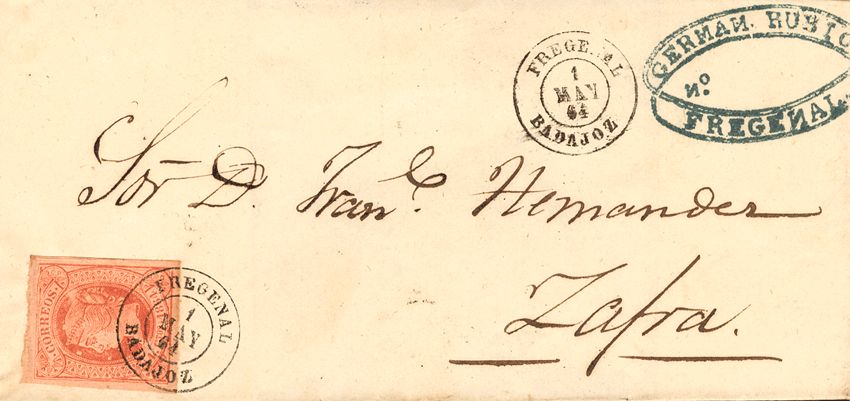 FREGENAL
1
MAY
64
BADAJOZ
GERMAN. RUBIO
Nº.
FREGENAL
Sõr D. Fran.co Hernandez
Zafra.
CORREOS.
FREGENAL
1
MAY
64
BADAJOZ